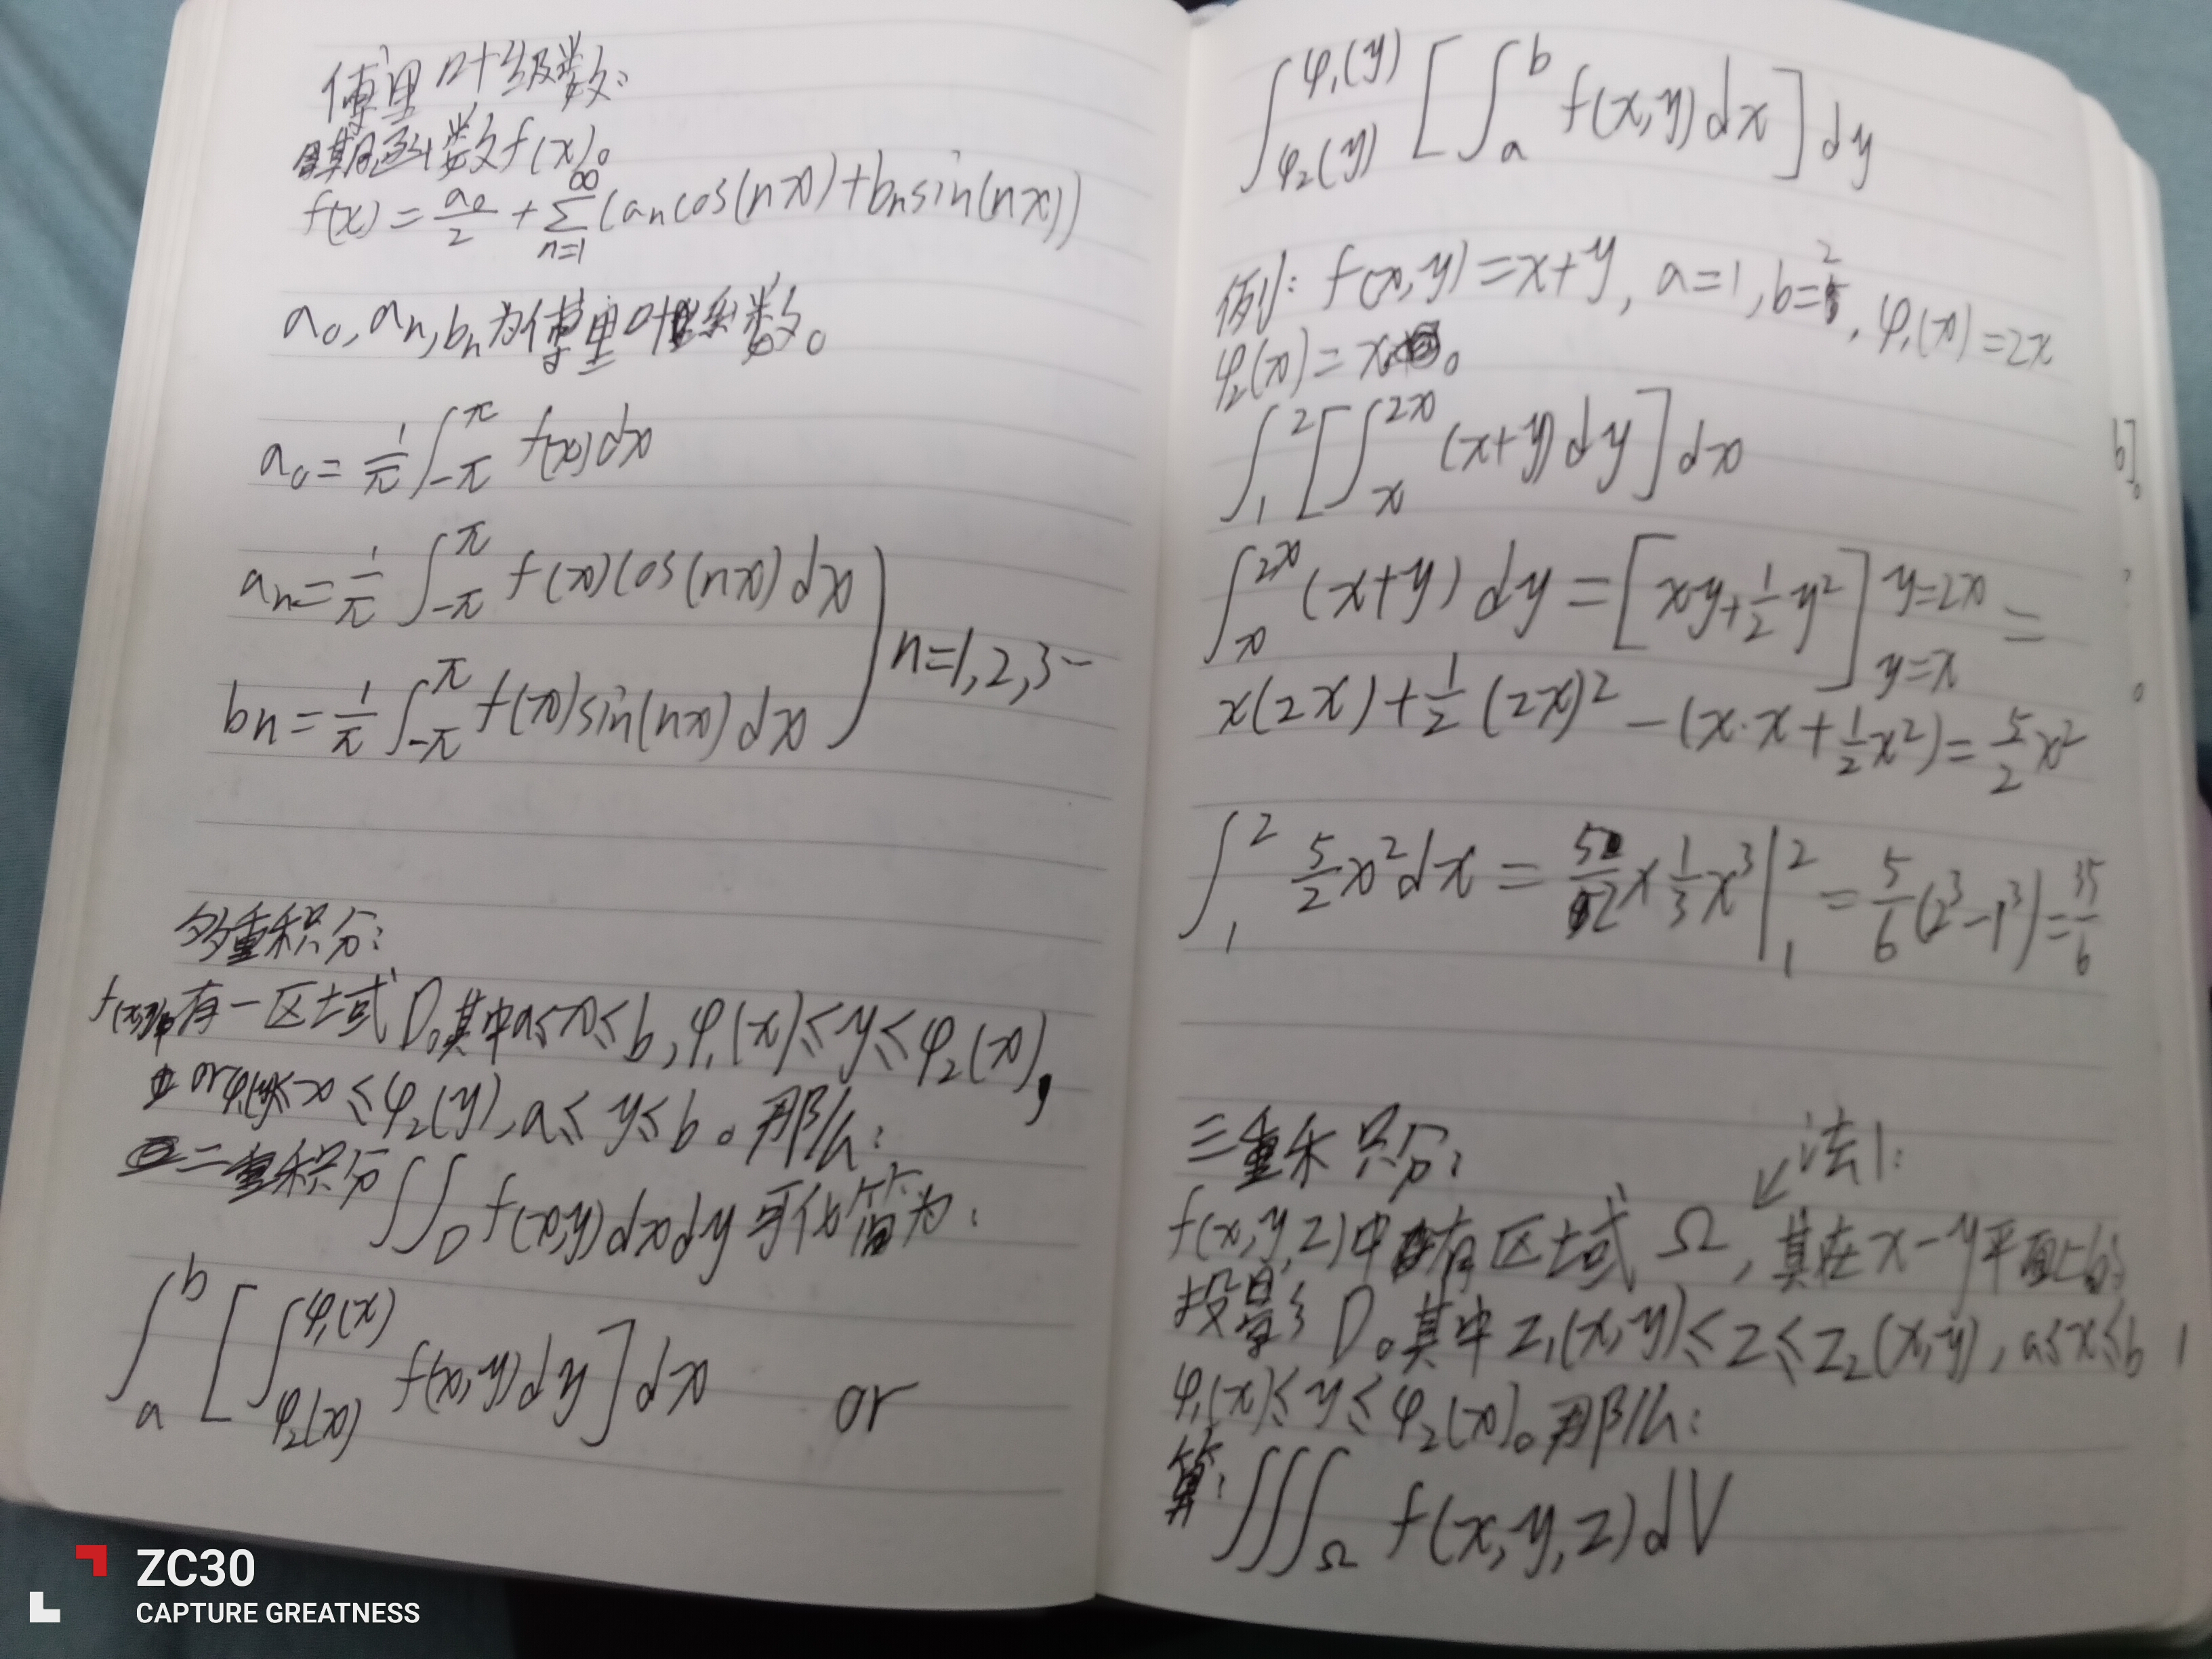 傅里叶级数:
周期函数f(x)。
f(x) = a₀/2 + ∑_{n=1}^{∞} (aₙcos(nx)+bₙsin(nx))
a₀,aₙ,bₙ为傅里叶系数。
a₀= 1/π ∫_{-π}^{π} f(x)dx
aₙ= 1/π ∫_{-π}^{π} f(x)cos(nx)dx
bn = 1/π ∫_{-π}^{π} f(x)sin(nx)dx
n=1,2,3
多重积分:
f(x,y)中有一区域D。其中a≤x≤b,φ₁(x)≤y≤φ₂(x),
or φ₁(y)≤x≤φ₂(y),a≤y≤b。那么:
二重积分∬_D f(x,y)dxdy可化简为:
∫_a^b [∫_{φ₂(x)}^{φ₁(x)} f(x,y)dy]dx or
∫_{φ₂(y)}^{φ₁(y)} [∫_a^b f(x,y)dx]dy
例: f(x,y)=x+y, a=1,b=2, φ₁(x)=2x
φ₂(x)=x。
∫_1^2 [∫_x^{2x} (x+y)dy]dx
∫_x^{2x} (x+y) dy = [xy+1/2 y²] y=2x y=x =
x(2x)+1/2 (2x)² -(x·x+1/2 x²)= 5/2 x²
∫_1^2 5/2 x²dx = 5/2 × 1/3 x³|_1^2 = 5/6 (2³-1³)= 35/6
三重积分:
法1:
f(x,y,z)中有区域 Ω,其在x-y平面上的
投影 D。其中z₁(x,y)≤z≤z₂(x,y),a≤x≤b,
φ₁(x)≤y≤φ₂(x)。那么:
算:∭_Ω f(x,y,z)dV
b]。
ZC30
CAPTURE GREATNESS